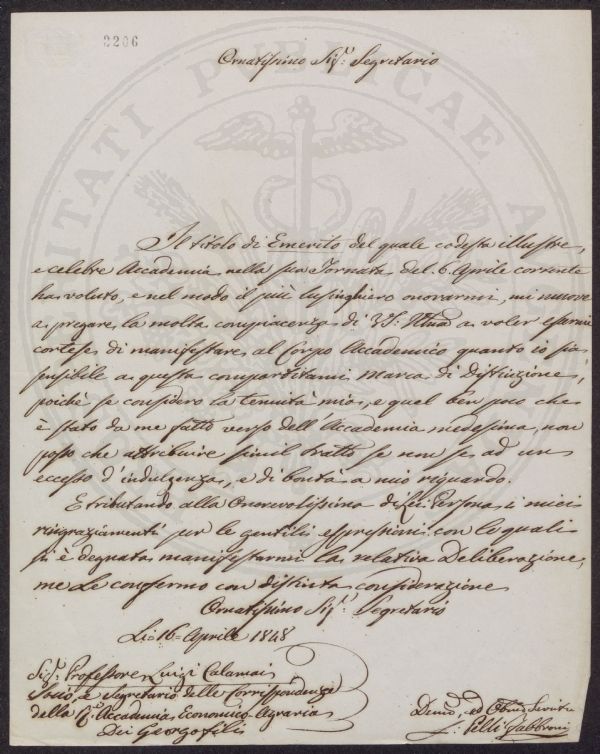 2206
Ornatissimo Sig:r Segretario
Il titolo di Emerito del quale codesta illustre,
e celebre Accademia nella sua Tornata del 6. Aprile corrente
ha voluto, e nel modo il più lusinghiero onorarmi, mi muove
a pregare la molta compiacenza di VS: Illma a voler essermi
cortese di manifestare al Corpo Accademico quanto io sia
sensibile a questa compartitami Marca di Distinzione,
poichè se considero la tenuità mia, e quel ben poco che
è stato da me fatto verso dell'Accademia medesima, non
posso che attribuire simil tratto se non se ad un
eccesso d'indulgenza, e di bontà a mio riguardo.
E tributando alla Onorevolissima di Lei Persona i miei
ringraziamenti per le gentili espressioni con le quali
si è degnata manifestarmi la relativa Deliberazione,
me Le confermo con distinta considerazione
Ornatissimo Sig:r Segretario
Li 16 Aprile 1848
Sig:r Professore Luigi Calamai
Socio e Segretario delle Corrispondenze
della R: Accademia Economico Agraria
Dei Georgofili
Devmo, ed Obbmo Servitre
Pelli Fabbroni
PUBLICAE